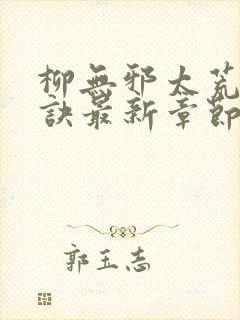 柳無邪太荒
訣最新章節
郭玉志